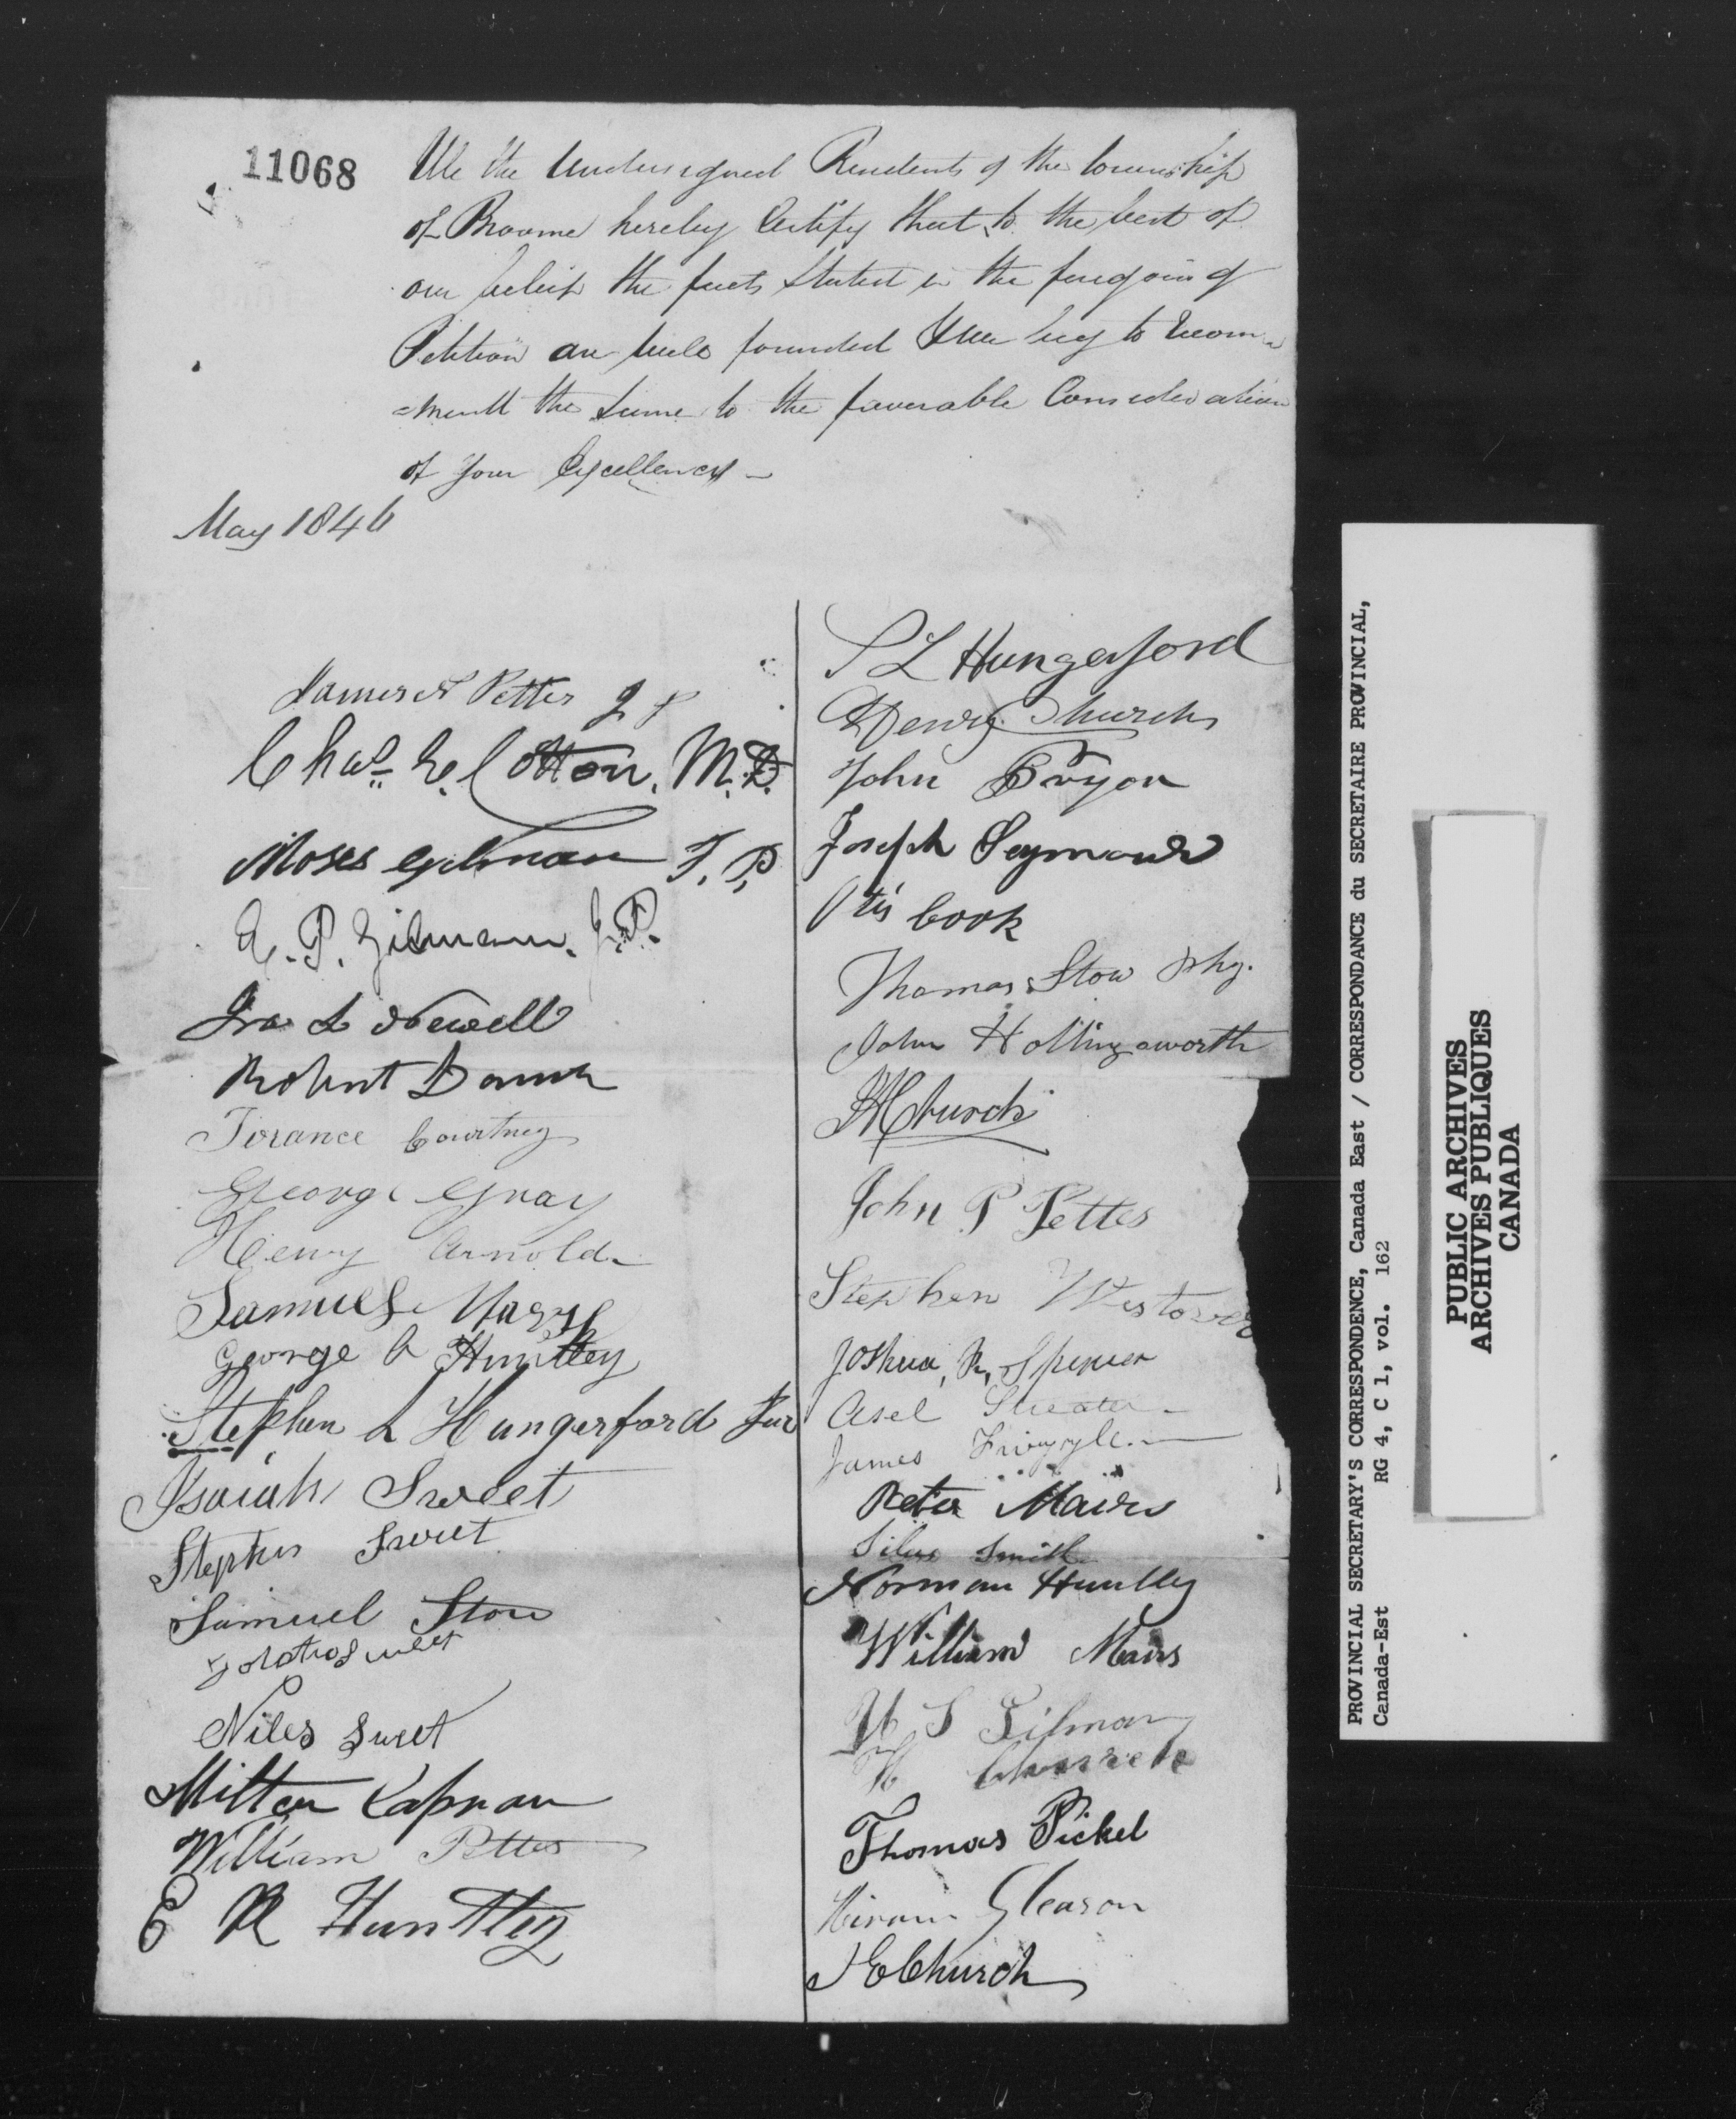 11068
We the Undersigned Residents of the township
of Broome hereby Certify that to the best of
our belief the facts stated in the foregoing
Petition are well founded & we beg to recom
=mend the same to the favorable Consideration
of your Excellency -
May 1846
James N Pettes J P
Chas. E. Cotton, M.D.
Moses Gilman J. P.
A. P. Gilman. J.P.
Ira L Newell
Robert
Torance Courtney
George Gray
Henry Arnold
Samuel
George A Huntley
Stephen L Hungerford Jur
Isaiah Sweet
Stephen Sweet
Samuel Stow
Horatio Sweet
Niles Sweet
Milton Capron
William Pettes
E R Huntley
S L Hungerford
Henry Church
John Bryon
Joseph Seymour
Otis Cook
Thomas Stow
John Hollingsworth
Church
John P Pettes
Stephen Westover
Joshua R, Spencer
Asel Streeter
James
Peter Mairs
Silas Smith
Norman Huntley
William Mairs
S Gilman
H
Thomas Pickel
Hiram Gleason
J E Church
PROVINCIAL SECRETARY'S CORRESPONDENCE, Canada East / CORRESPONDANCE du SECRETAIRE PROVINCIAL,
Canada-Est RG 4, C 1, vol. 162
PUBLIC ARCHIVES
ARCHIVES PUBLIQUES
CANADA